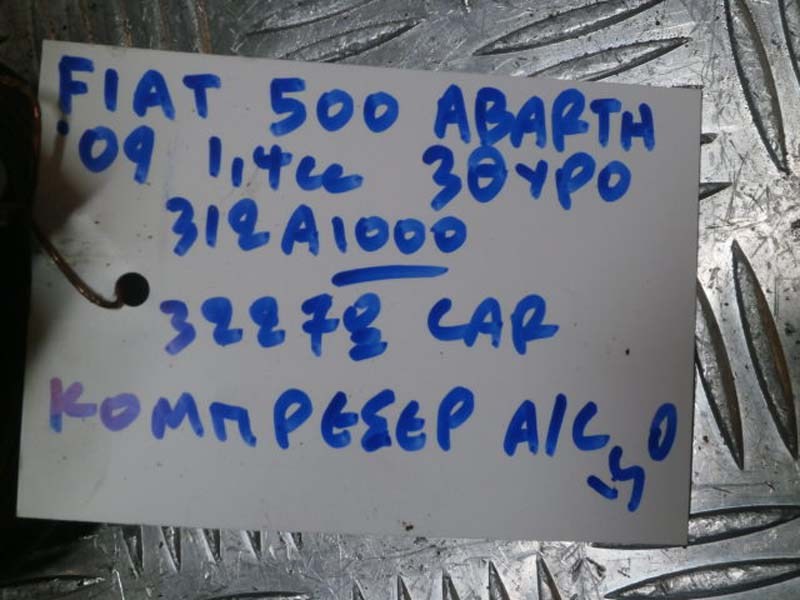 FIAT 500 ABARTH
'09 1,4cc 3ΘΥΡΟ
312A1000
32272 CAR
ΚΟΜΠΡΕΣΕΡ A/C